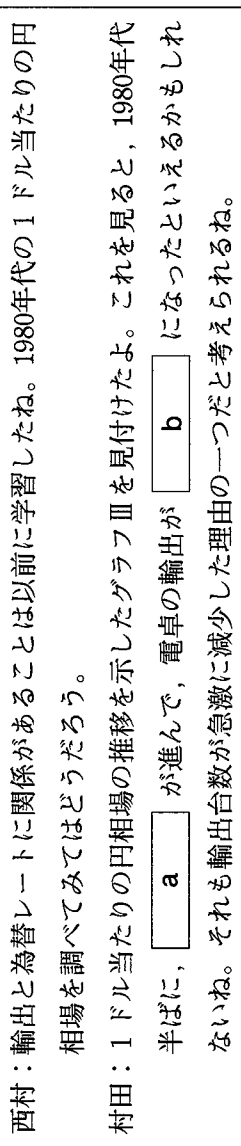 西村：輸出と為替レートに関係があることは以前に学習したね。1980年代の1ドル当たりの円
相場を調べてみてはどうだろう。
村田：1ドル当たりの円相場の推移を示したグラフⅢを見付けたよ。これを見ると，1980年代
半ばに， a が進んで，電卓の輸出が b になったといえるかもしれ
ないね。それも輸出台数が急激に減少した理由の一つだと考えられるね。